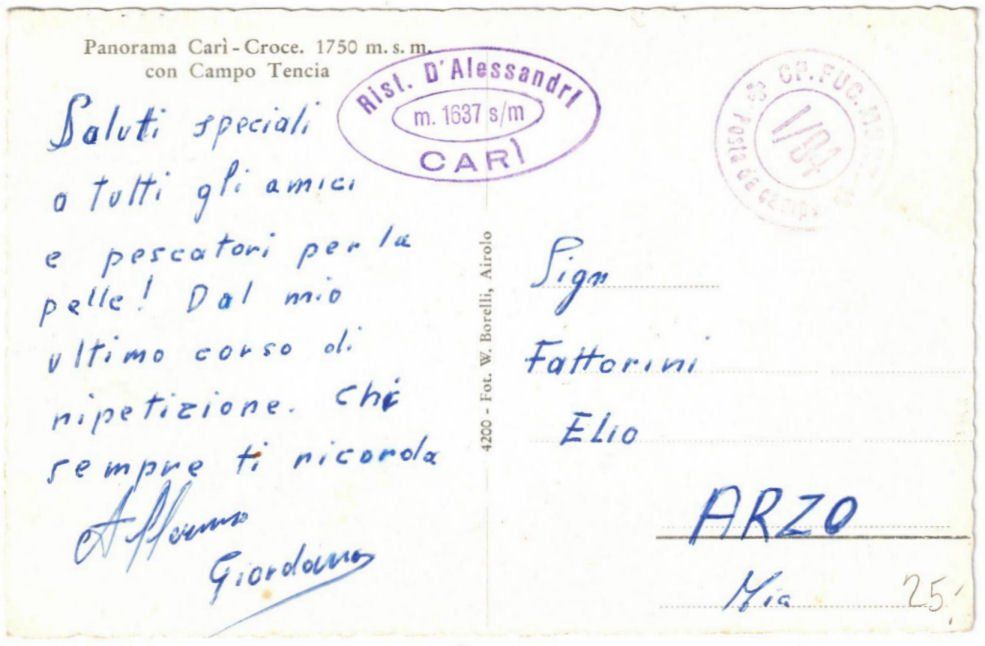 Panorama Carì - Croce. 1750 m. s. m.
con Campo Tencia
Rist. D'Alessandri
m. 1637 s/m
CARÌ
CP. FUC. MONT.
I/94
Posta da campo
Saluti speciali
a tutti gli amici
e pescatori per la
pelle! Dal mio
ultimo corso di
ripetizione. Chi
sempre ti ricorda
Giordano
4200 - Fot. W. Borelli, Airolo
Sign
Fattorini
Elio
ARZO
25.